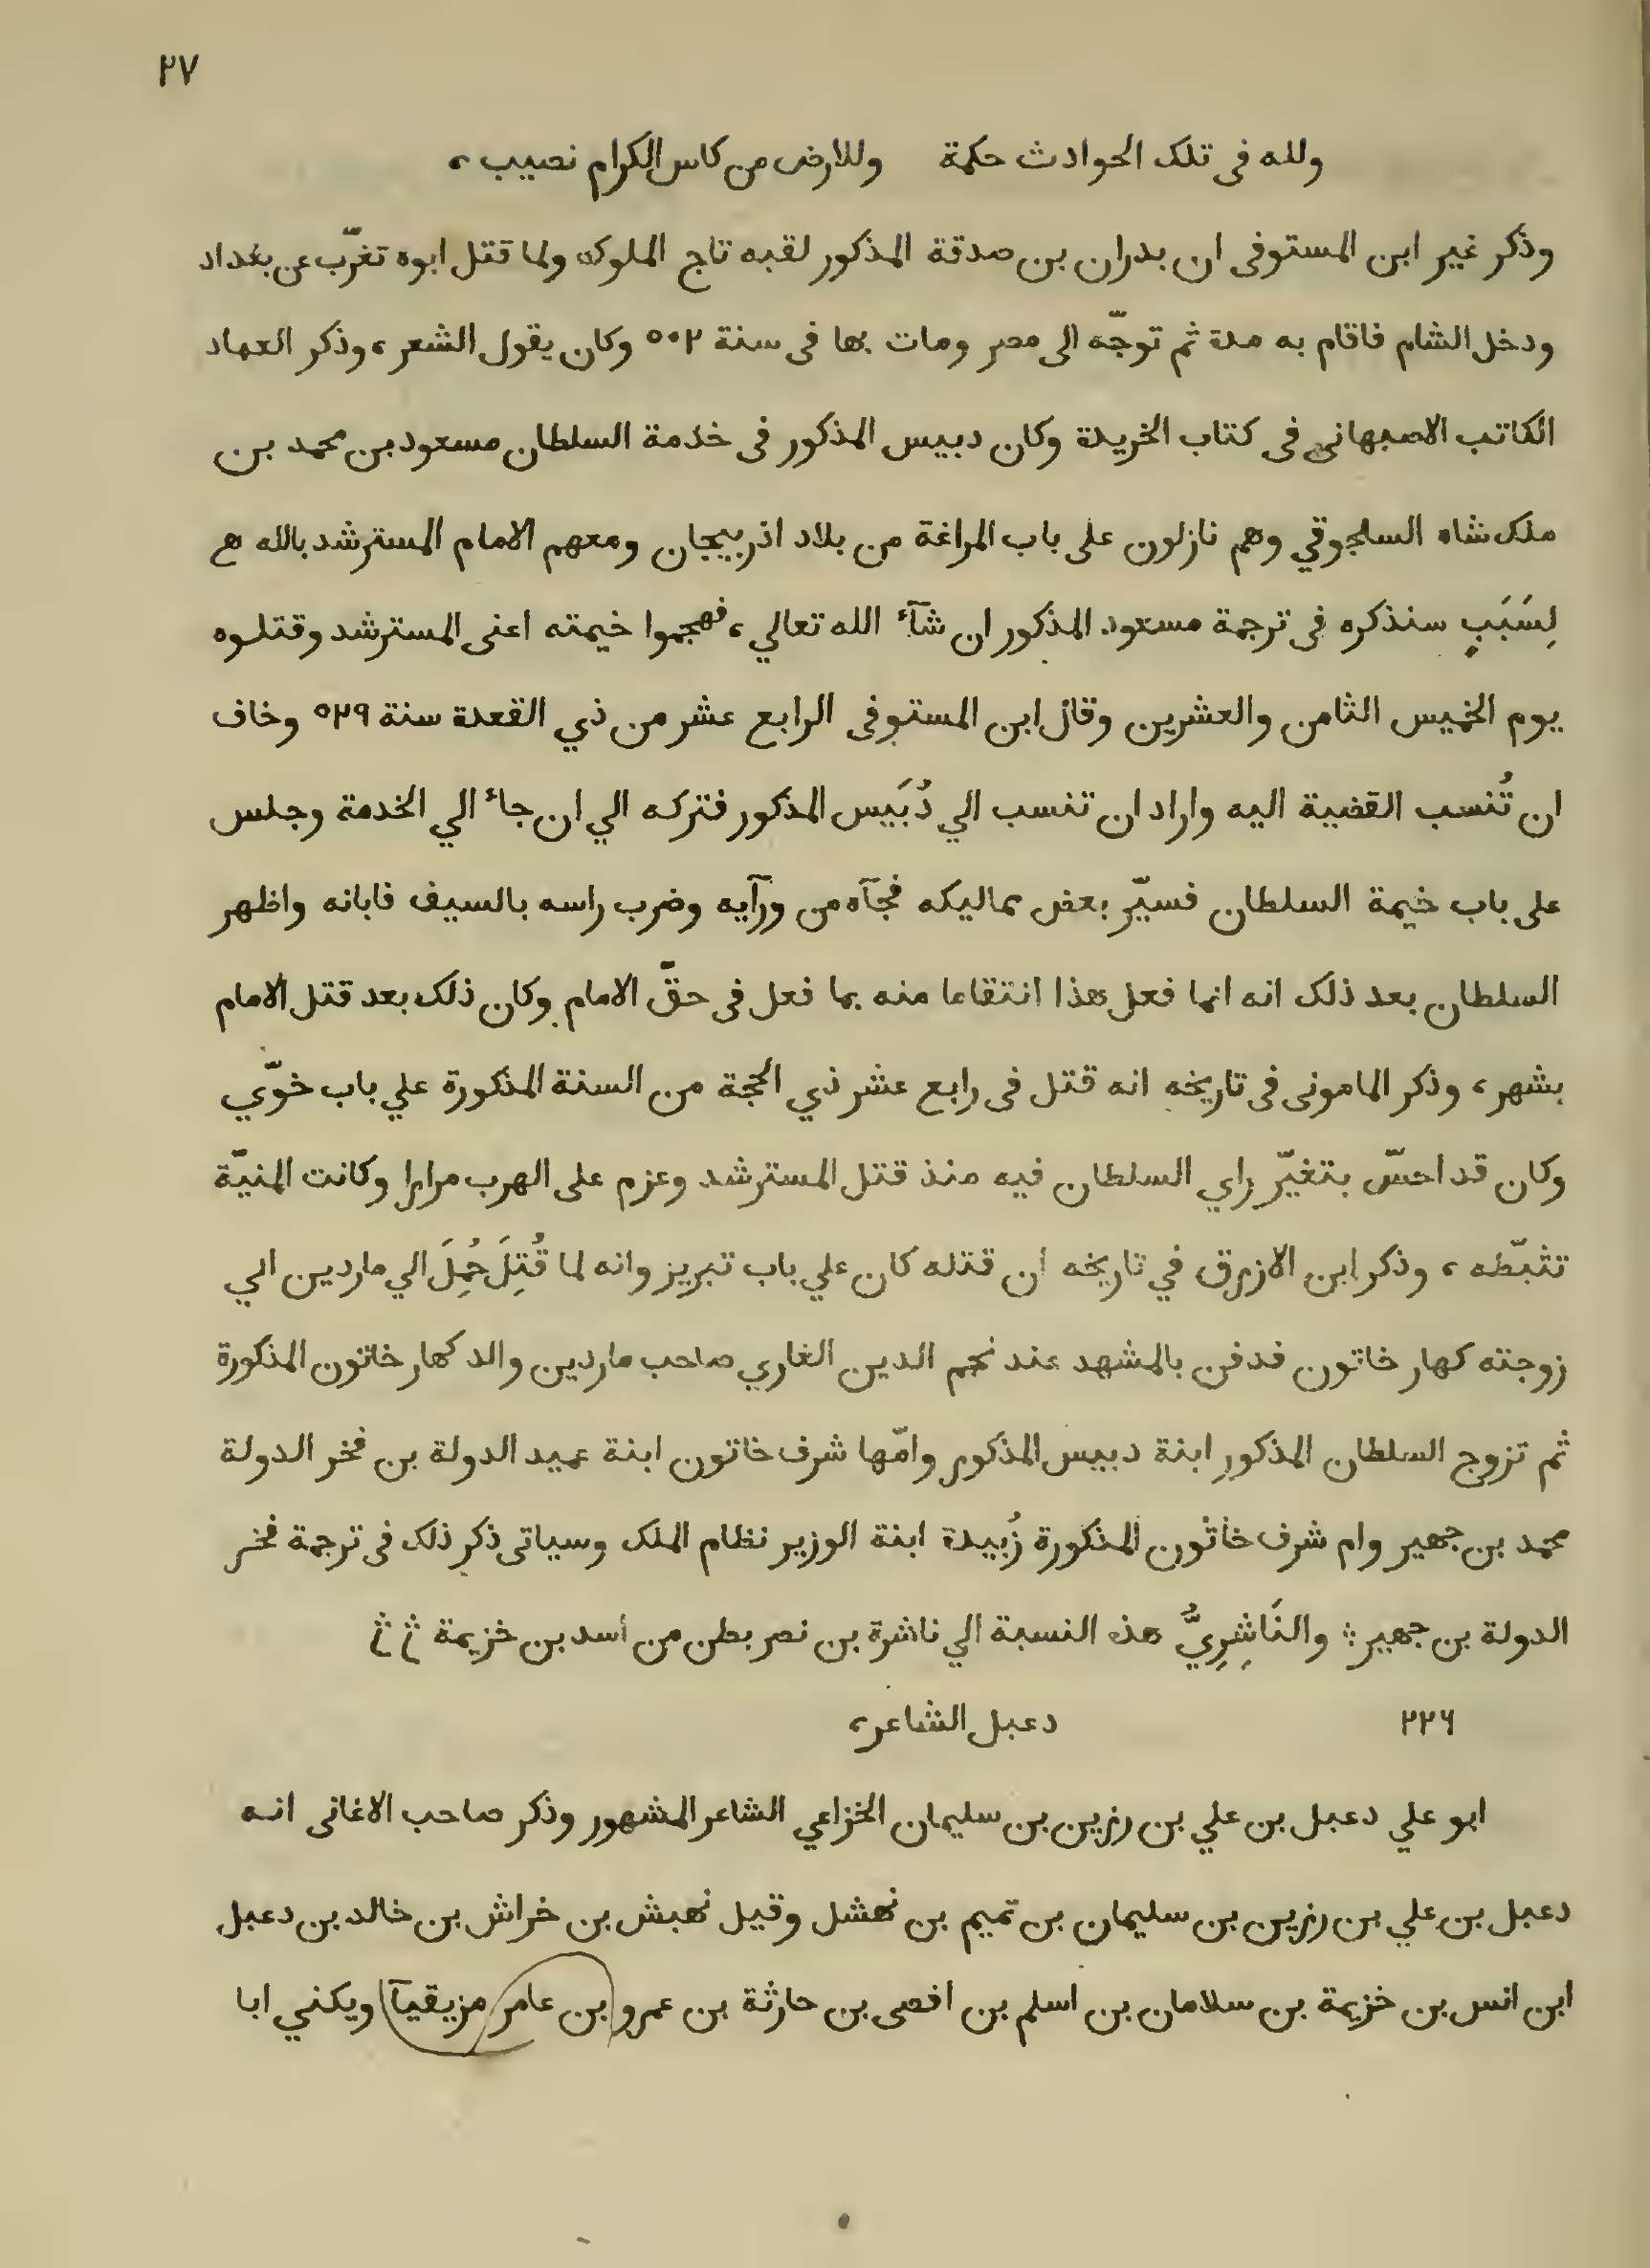 ٢٧
ولله فى تلك الحوادث حكمة وللارض من كاس الكرام نصيب ،
وذكر غير ابن المستوفى ان بدران بن صدقة المذكور لقبه تاج الملوك ولما قتل ابوه تغرّب عن بغداد
ودخل الشام فاقام به مدة ثم توجّه الى مصر ومات بها فى سنة ٥٠٢ وكان يقول الشعر ، وذكر العماد
الكاتب الاصبهانى فى كتاب الخريدة وكان دبيس المذكور فى خدمة السلطان مسعود بن محمد بن
ملكشاه السلجوقي وهم نازلون على باب المراغة من بلاد اذربيجان ومعهم الامام المسترشد بالله هم
لِسَبَبٍ سنذكره فى ترجمة مسعود المذكور ان شآء الله تعالي ، فهجموا خيمته اعنى المسترشد وقتلوه
يوم الخميس الثامن والعشرين وقال ابن المستوفى الرابع عشر من ذي القعدة سنة ٥٢٩ وخاف
ان تُنسب القضية اليه واراد ان تنسب الي دُبَيس المذكور فتركه الي ان جاء الي الخدمة وجلس
على باب خيمة السلطان فسيّر بعض مماليكه فجآه من ورآيه وضرب راسه بالسيف فابانه واظهر
السلطان بعد ذلك انه انما فعل هذا انتقاما منه بما فعل فى حقّ الامام وكان ذلك بعد قتل الامام
بشهر ، وذكر المامونى فى تاريخه انه قتل فى رابع عشر ذي الحجة من السنة المذكورة علي باب خوّي
وكان قد احسّ بتغيّر راي السلطان فيه منذ قتل المسترشد وعزم على الهرب مرارا وكانت المنيّة
تثبّطه ، وذكر ابن الازرق في تاريخه ان قتله كان علي باب تبريز وانه لما قُتِلَ حُمِلَ الي ماردين الي
زوجته كهار خاتون فدفن بالمشهد عند نجم الدين الغاري صاحب ماردين والد كهار خاتون المذكورة
ثم تزوج السلطان المذكور ابنة دبيس المذكور وامّها شرف خاتون ابنة عميد الدولة بن فخر الدولة
محمد بن جهير وام شرف خاتون المذكورة زُبيدة ابنة الوزير نظام الملك وسياتى ذكر ذلك فى ترجمة فخر
الدولة بن جهير ؛ والنَاشِرِيُّ هذه النسبة الي ناشرة بن نصر بطن من أسد بن خزيمة
٢٢٦ دعبل الشاعر ،
ابو علي دعبل بن علي بن رزين بن سليمان الخزاعي الشاعر المشهور وذكر صاحب الاغانى انه
دعبل بن علي بن رزين بن سليمان بن تميم بن نهشل وقيل نهبش بن خراش بن خالد بن دعبل
ابن انس بن خزيمة بن سلامان بن اسلم بن افصى بن حارثة بن عمرو بن عامر مزيقيآ ويكني ابا